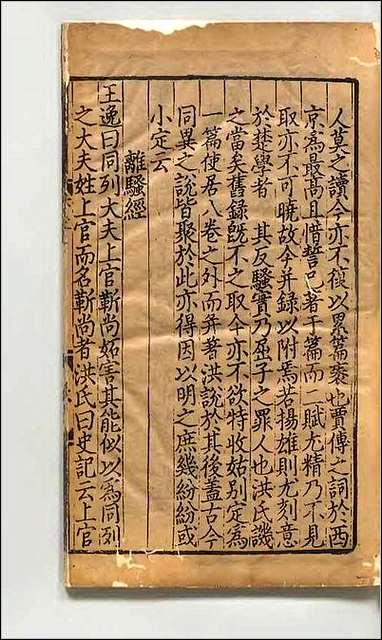 人莫之讀今亦不復以累篇袠也賈傅之詞於西
京爲最高且惜誓已著于篇而二賦尤精乃不見
取亦不可曉故今并録以附焉若揚雄則尤刻意
於楚學者 其反騷實乃屈子之罪人也洪氏譏
之當矣舊録旣不之取今亦不欲特收姑别定爲
一篇使居八卷之外而并著洪説於其後蓋古今
同異之説皆聚於此亦得因以明之庶幾紛紛或
小定云
離騷經
王逸曰同列大夫上官靳尚妬害其能似以爲同列
之大夫姓上官而名靳尚者洪氏曰史記云上官